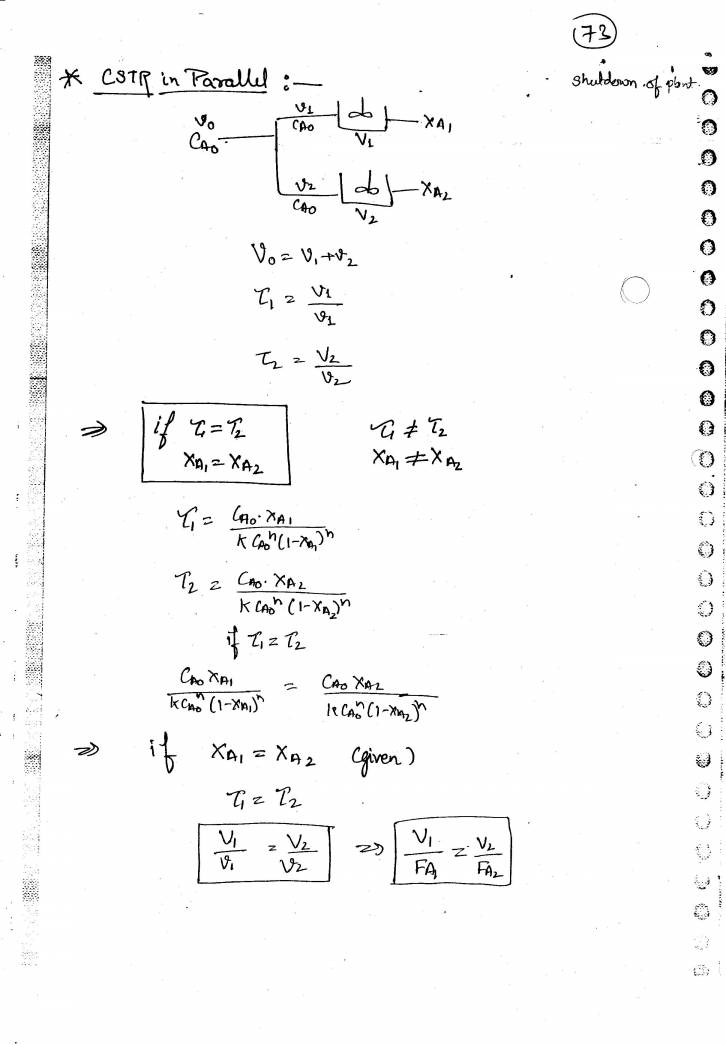 73
* CSTR in Parallel :—
shutdown of plant.
v0
CA0
v1
CA0
V1
XA1
v2
CA0
V2
XA2
V0 = v1 + v2
τ1 = V1 / v1
τ2 = V2 / v2
⇒ if τ1 = τ2 τ1 ≠ τ2
XA1 = XA2 XA1 ≠ XA2
τ1 = CA0 . XA1 / K CA0^n (1-XA1)^n
τ2 = CA0 . XA2 / K CA0^n (1-XA2)^n
if τ1 = τ2
CA0 XA1 / K CA0^n (1-XA1)^n = CA0 XA2 / K CA0^n (1-XA2)^n
⇒ if XA1 = XA2 (given)
τ1 = τ2
V1 / v1 = V2 / v2 ⇒ V1 / FA1 = V2 / FA2